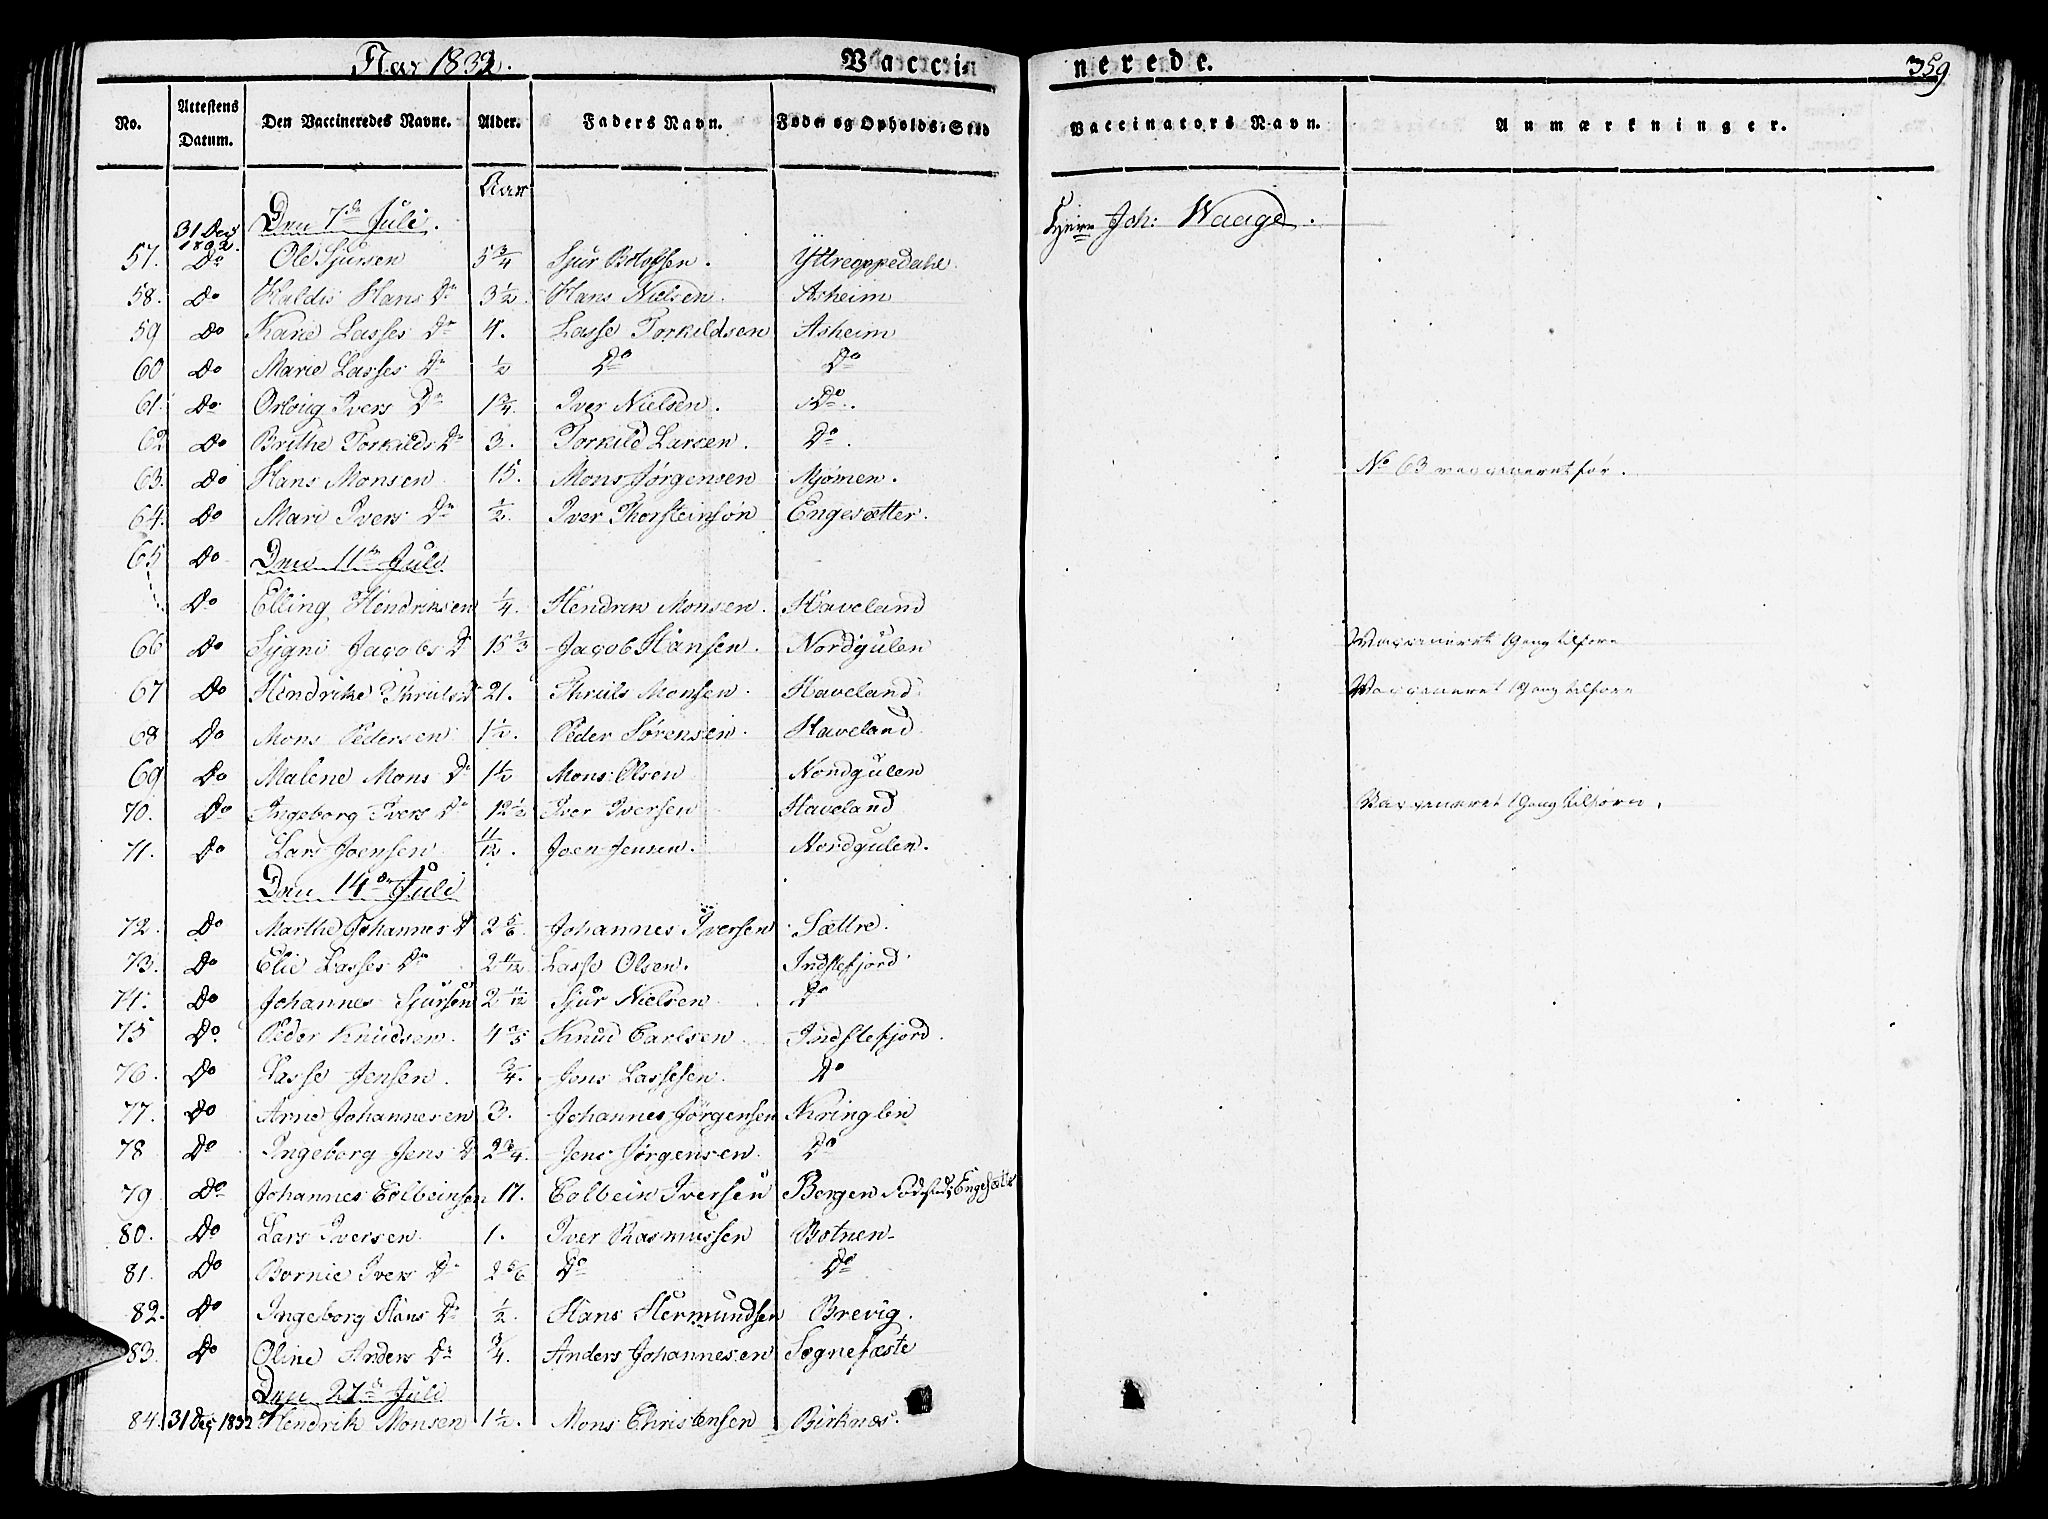 Aar 1832. Vaccinerede. 359
No. Attestens Datum. Den Vaccineredes Navne. Alder. Faders Navn. Føde og Opholds-Sted Vaccinators Navn. Anmærkninger.
Aar
31 Dec 1832. Den 7de Juli. Joh: Waage.
57. Do Ole Sjursen 5 3/4 Sjur Ytreoppedahl.
58. Do Haldis Hans Dr 3 1/2 Hans Nielsen. Asheim
59 Do Karie Lasses Dr 4. Lasse Torkildsen Asheim
60 Do Marie Lasses Dr 1/2 Do Do
61. Do Orloug Ivers Dr 1 3/4. Iver Nielsen. Do.
62 Do Brithe Torkilds Dr 3. Torkild Larsen. Do.
63. Do Hans Monsen 15. Mons Jørgensen Mjømen. No 63 vaccineret før.
64. Do Mari Ivers Dr 1/2. Iver Thorsteinsøn Engesætter.
65 Do Den 11te Juli
Do Elling Hendriksen 1/4. Hendrik Monsen. Haveland
66 Do Sygni Jacobs D 15 2/3 Jacob Hansen. Nordgulen Vaccineret 1 Gang tilforn
67 Do Hendrikke Thruls D 21. Thruls Monsen. Haveland Vaccineret 1 Gang tilforn
68 Do Mons Pedersen 1 1/2. Peder Sørensen. Haveland
69 Do Malene Mons Dr 1 1/2 Mons Olsen Nordgulen
70. Do Ingeborg Ivers Dr 12 1/2 Iver Iversen Haveland Vaccineret 1 Gang tilforn.
71. Do Lars Joensen 11/12. Joen Jensen. Nordgulen.
Den 14de Juli
72. Do Marthe Johannes D 2 5/6. Johannes Iversen Sættre.
73. Do Elie Lasses Dr 2 11/12 Lasse Olsen. Indstefjord
74. Do Johannes Sjursen 2 11/12 Sjur Nielsen Do
75 Do Peder Knudsen. 4 2/5 Knud Carlsen Indstefjord.
76. Do Lasse Jensen. 3/4. Jens Lassesen. Do
77. Do Arne Johannesen 3. Johannes Jørgensen Kringlen
78 Do Ingeborg Jens D 2 3/4. Jens Jørgensen. Do
79 Do Johannes Colbeinsen 17. Colbein Iversen Bergen Fødested Engesætt
80. Do Lars Iversen 1. Iver Rasmussen Botnen
81. Do Bornie Ivers Dr 2 5/6 Do Do
82. Do Ingeborg Hans Dr 1/2. Hans Hermundsen Brevig.
83. Do Oline Anders Dr 3/4. Anders Johannesen Sognefæste
Den 27de Juli
84. 31 Dec 1832 Hendrik Monsen 1 1/2. Mons Christensen Birknæs.